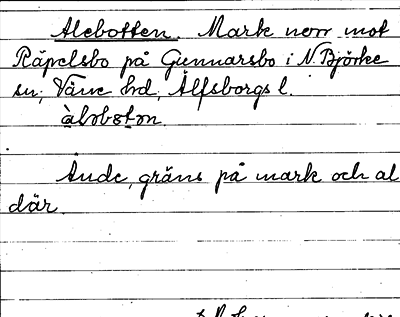 Alebotten. Mark norr mot
Räpelsbo på Gunnarsbo i N. Björke
sn, Väne hd, Älfsborgs l.
àləbòtən.
Ände, gräns på mark och al
där.